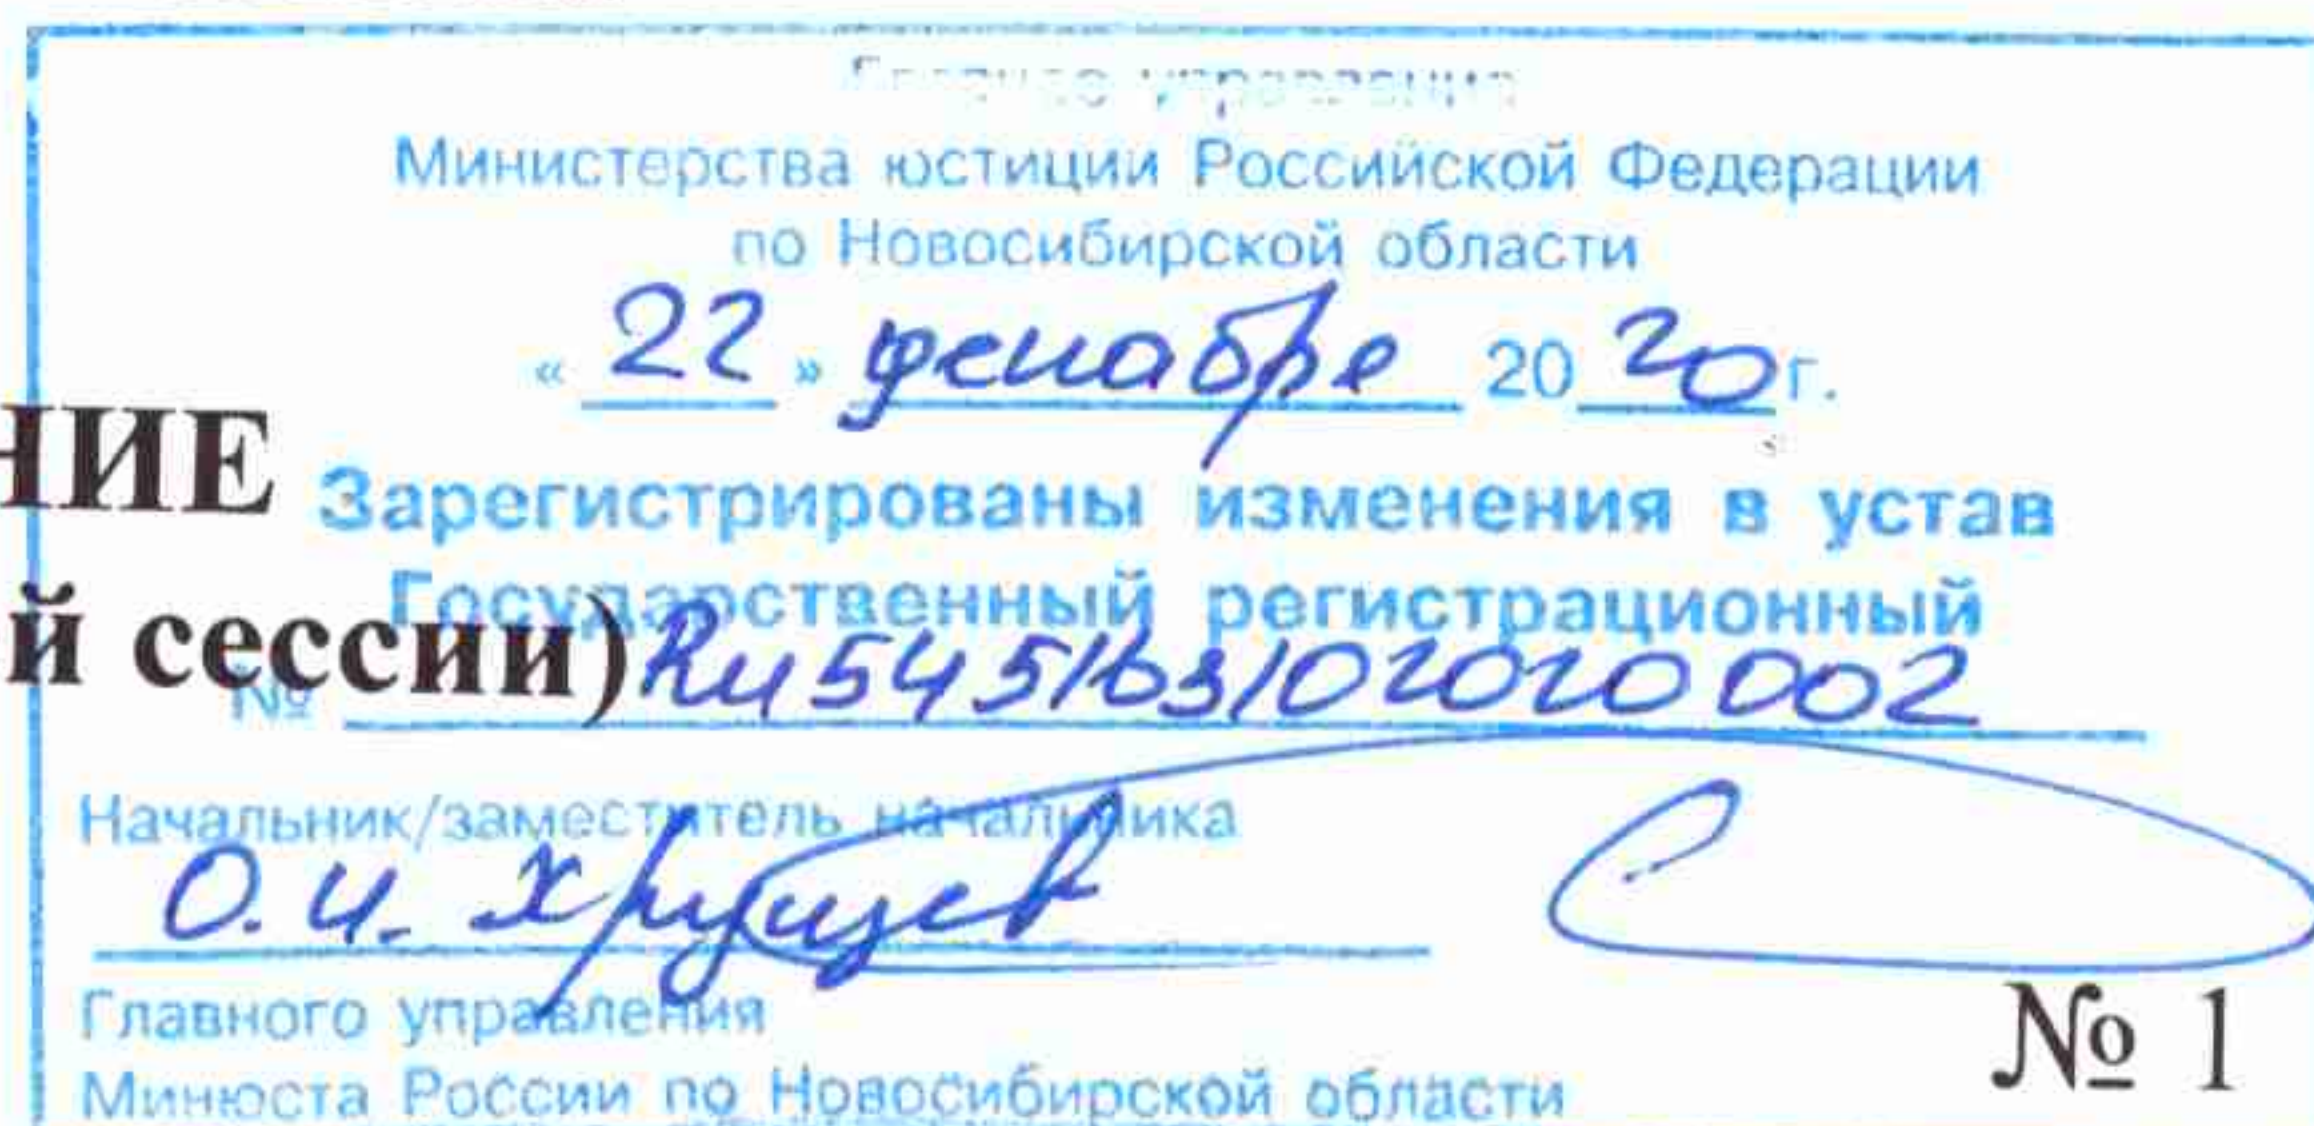 Главное управление
Министерства юстиции Российской Федерации
по Новосибирской области
« 22 » декабря 20 20 г.
НИЕ
Зарегистрированы изменения в устав
Государственный регистрационный
й сессии)
№ Ru545163102020002
Начальник/заместитель начальника
О. И. Хрущев
Главного управления
№ 1
Минюста России по Новосибирской области